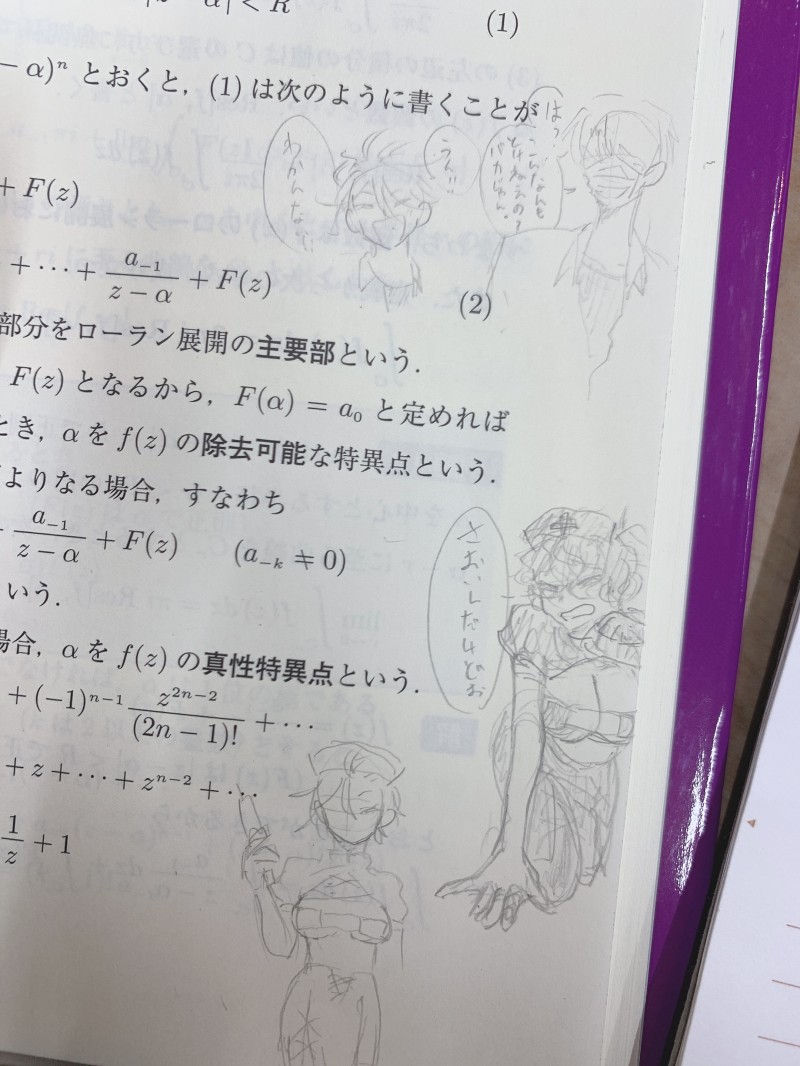 |z − α| < R
(1)
− α)ⁿ とおくと，(1) は次のように書くことが
+ F(z)
+ ⋯ + a₋₁/(z − α) + F(z)
(2)
部分をローラン展開の主要部という．
F(z) となるから，F(α) = a₀ と定めれば
とき，α を f(z) の除去可能な特異点という．
よりなる場合，すなわち
a₋₁/(z − α) + F(z) (a₋ₖ ≠ 0)
いう．
場合，α を f(z) の真性特異点という．
+ (−1)ⁿ⁻¹ z²ⁿ⁻²/(2n − 1)! + ⋯
+ z + ⋯ + zⁿ⁻² + ⋯
1/z + 1
はっ？
こんなんも
とけねぇの？
バカじゃん
うん!!
わかんない